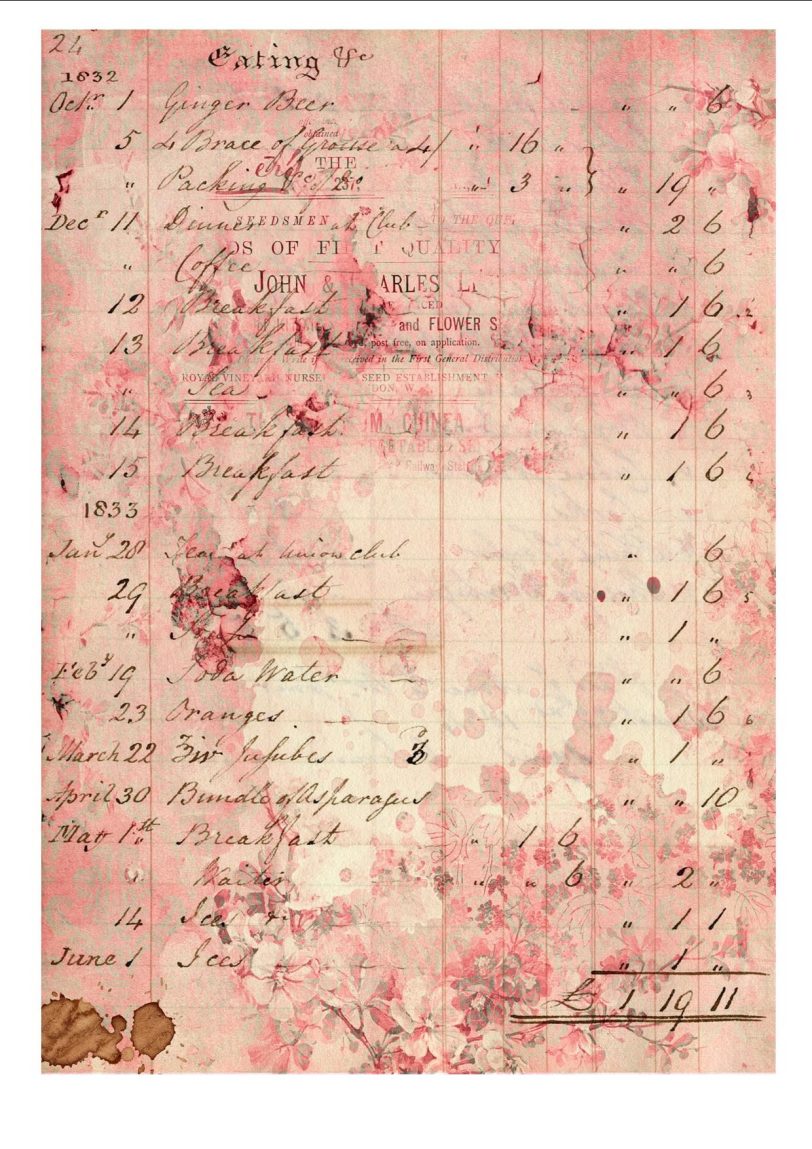 24
Eating &c
1832
Octr 1 Ginger Beer " " 6
obtained
5 4 Brace of Grouse a 4/ " 16 "
THE
" Packing &c " 3 " " 19 "
Decr 11 Dinner at Club " 2 6
SEEDSMEN TO THE QUE
" Coffee " " 6
DS OF FI T QUALITY
JOHN & ARLES L
12 Breakfast " 1 6
and FLOWER S
13 Breakfast " 1 6
post free, on application.
received in the First General Distribution
ROYAL VINEYARD NURSE SEED ESTABLISHMENT
" Tea " " 6
DON, W.
14 Breakfast " 1 6
GUINEA
15 Breakfast " 1 6
Railway
1833
Jany 28 Tea at Union club " 6
29 Breakfast " 1 6
" " 1 "
Feby 19 Soda Water " " 6
23 Oranges " 1 6
March 22 Jujubes 3 " 1 "
April 30 Bundle of Asparagus " " 10
1th Breakfast " 1 6
Waiter " " 6 " 2 "
14 Ices & " 1 1
June 1 Ices " 1 "
£ 1 19 11